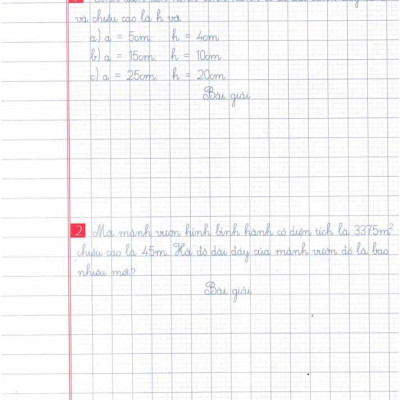 và chiều cao là h với
a) a = 5cm h = 4cm
b) a = 15cm h = 10cm
c) a = 25cm h = 20cm
Bài giải
2 Một mảnh vườn hình bình hành có diện tích là 3375m²
chiều cao là 45m. Hỏi độ dài đáy của mảnh vườn đó là bao
nhiêu mét?
Bài giải